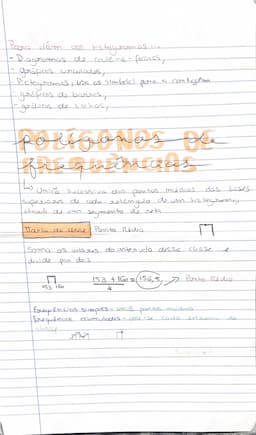 Para além dos histogramas...
- Diagramas de caule-e-folhas,
- gráficos circulares,
- Pictogramas,
- gráficos de barras,
- gráficos de linhas,
POLÍGONOS DE
polígonos de
FREQUÊNCIAS
frequências
↳ União sucessiva dos pontos médios das bases
superiores de cada retângulo de um histograma,
através de um segmento de reta
Marca da classe: Ponto Médio
Soma os valores do intervalo dessa classe e
divide por dois
153 160
153 + 160 = 156,5 → Ponto Médio
Frequências simples - pontos médios
Frequências acumuladas -
classe